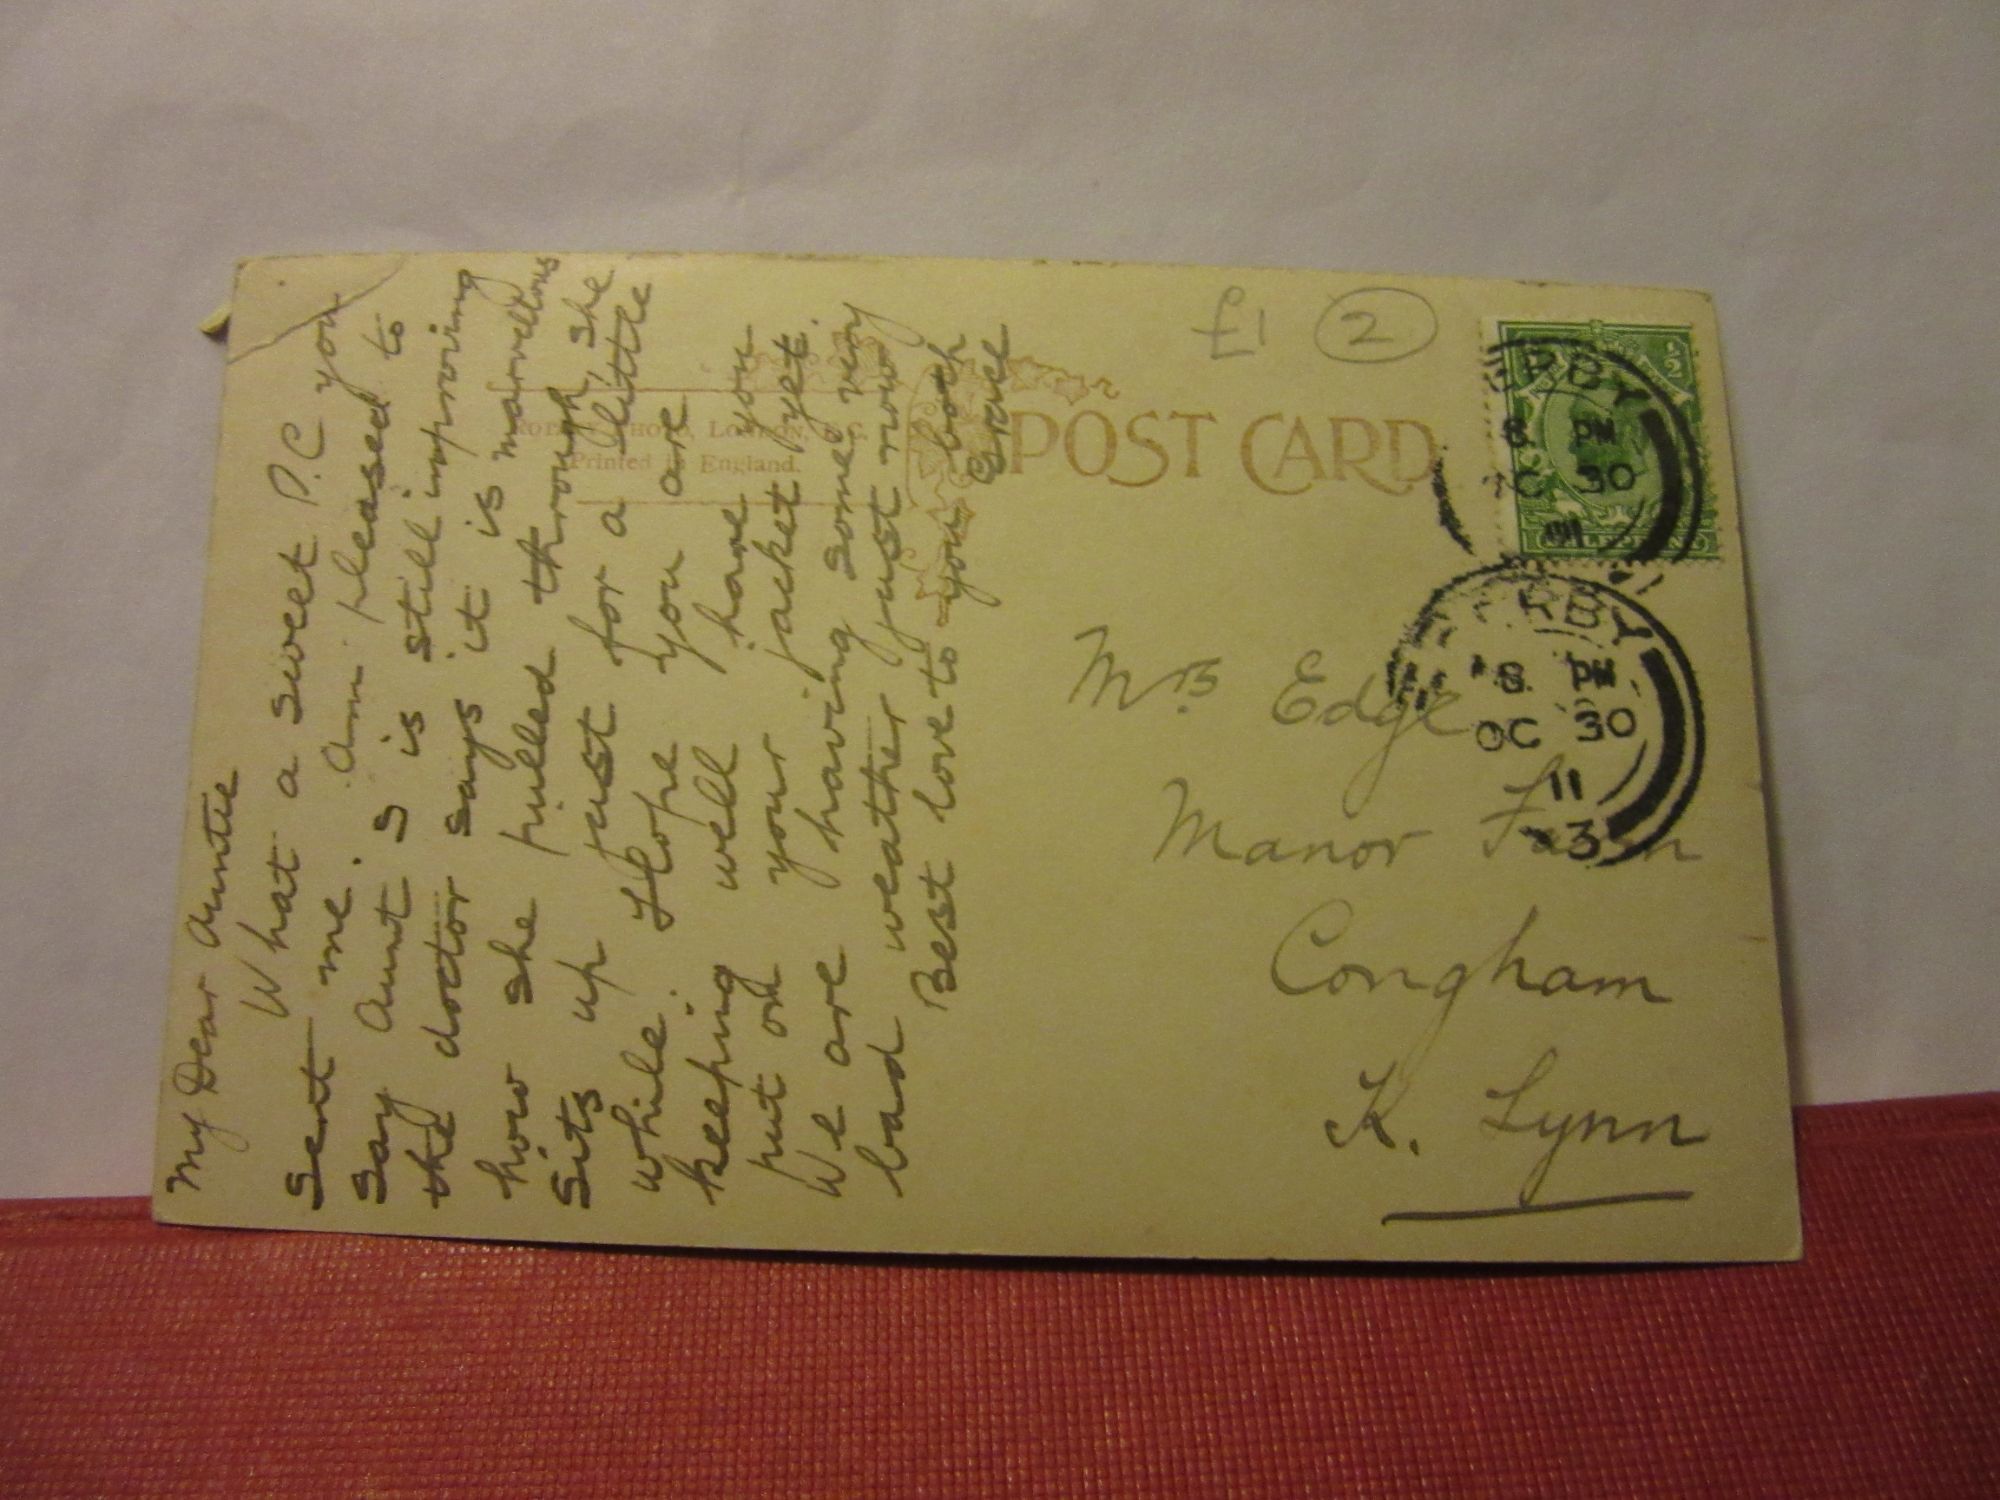 My Dear Auntie
What a sweet P.C you
sent me. Am pleased to
say Aunt S is still improving
the doctor says it is marvellous
how she pulled through, she
sits up just for a little
while. Hope you are
keeping well have you
put on your jacket yet.
We are having some very
bad weather just now
Best love to you both
Grace
PHOTO, LONDON, E.C.
Printed in England.
POST CARD
£1 2
1/2
ERBY
8 PM
OC 30
11
RBY
8 PM
OC 30
11
3
Mrs Edge
Manor Farm
Congham
K. Lynn